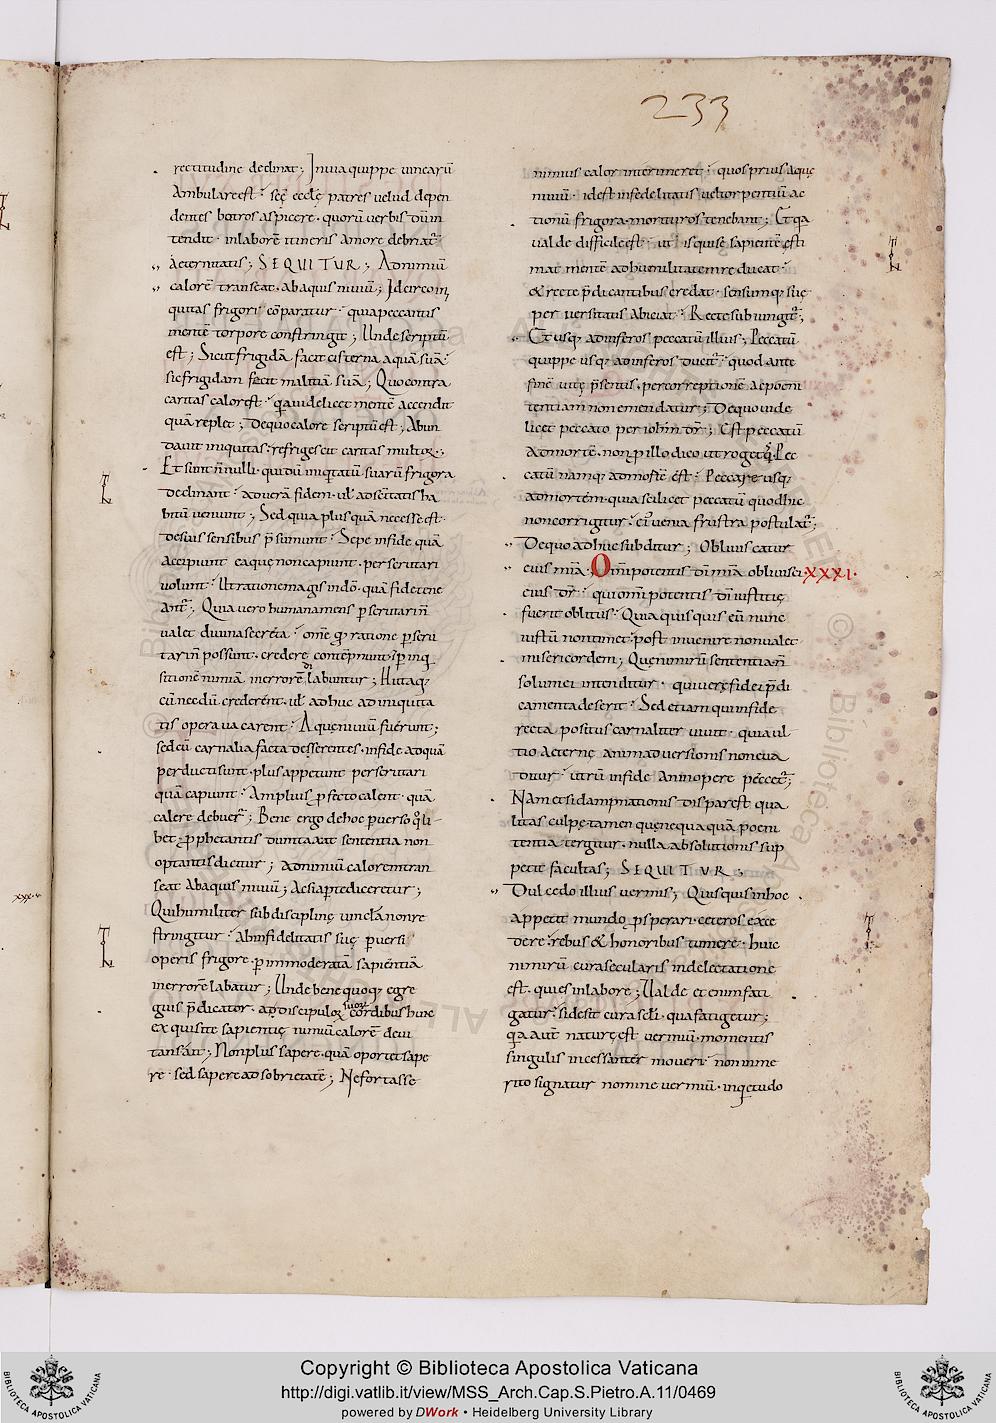 233
rectitudine declinat; In via quippe vinearũ
ambulare est · sc̃ę ecclę patres velud depen
dentes botros aspicere · quorũ verbis dũ in
tendit · in labore itineris amore debriat᷑
aeternitatis; SEQUITUR; Ad nimiũ
calorẽ transeat · ab aquis niviũ; Idcirco ini
quitas frigori cõparatur · quia peccantis
mentẽ torpore constringit; Unde scriptũ
est; Sicut frigidã facit cisterna aquã suã ·
sic frigidam fecit malitiã suã; Quo contra
caritas calor est · q̃a videlicet mentẽ accendit
quã replet; De quo calore scriptũ est; Abun
davit iniquitas · refrigescit caritas multoꝝ;
Et sunt ñnulli · qui dũ iniq̃tatũ suarũ frigora
declinant · ad verã fidem · vł ad sc̃itatis ha
bitũ veniunt; Sed quia plus quã necesse est ·
de suis sensibus p̃sumunt · Sepe in fide quã
accipiunt ea quę non capiunt · perscrutari
volunt · Ut ratione magis in dõ · quã fide tene
ant᷑; Quia vero humana mens p̱scrutari ñ
valet divina secreta · om̃e qđ ratione p̱scru
tari ñ possunt · credere contẽpnunt · & p̱ inq̃
sitionẽ nimiã in errorẽ dilabuntur; Hi itaq;
cũ necdũ crederent · vł adhuc ad iniquita
tis opera vacarent · Aquę niviũ fuerunt;
sed cũ carnalia facta deserentes · in fide ad quã
perducti sunt · plus appetunt perscrutari
quã capiunt · Amplius p̱fecto calent · quã
calere debuer̃; Bene ergo de hoc p̱verso q̃li
bet · p̱phetantis dumtaxat sententia non
optantis dicitur; ad nimiũ calorem tran
seat ab aquis niviũ; Ac si ap̱te diceretur;
Qui humiliter sub disciplinę vinclã non re
stringitur · Ab infidelitatis suę p̱versi
operis frigore · p̱ immoderatã sapientiã
in errorẽ labatur; Unde bene quoq; egre
gius p̃dicator · a discipuloꝝ suoꝝ cordibus hunc
exquisite sapientię nimiũ calorẽ devi
tans ait; Non plus sapere · quã oportet sape
re · sed sapere ad sobrietatẽ; Ne fortasse
nimius calor interimeret · quos prius aquę
niviũ · id est infidelitatis vel torpentiũ ac
tionũ frigora morituros tenebant; Et q̃a
valde difficile est · ut is qui sę sapientẽ ęsti
mat mentẽ ad humilitatem reducat ·
& recte p̃dicantibus credat · sensumq; suę
perversitatis abiciat · Recte subiungit᷑;
Et usq; ad inferos peccatũ illius; Peccatũ
quippe usq; ad inferos ducit᷑ · quod ante
finẽ vitę p̃sentis · per correptionẽ ac poeni
tentiam non emendatur; De quo vide
licet peccato per iohñm dr̃; Est peccatũ
ad mortẽ · non p̱ illo dico ut roget q̃s · Pec
catũ namq; ad mortẽ est · Peccare usq;
ad mortem · quia scilicet peccatũ quod hic
non corrigitur · eĩ venia frustra postulat᷑;
De quo adhuc subditur; Obliviscatur
eius mĩa; Omĩpotentis dĩ mĩa oblivisci XXXI·
eius dr̃ · qui omĩpotentis dĩ iustitię
fuerit oblitus · Quia quisquis eũ nunc
iustũ non timet · post invenire non valet
misericordem; Quę nimirũ sententia ñ
solum ei intenditur · qui verę fidei p̃di
camenta deserit · Sed etiam qui in fide
recta positus carnaliter vivit · quia ul
tio aeternę animadversionis non eva
ditur · utrũ in fide an in opere peccet᷑;
Nam etsi dampnationis dispar est qua
litas culpę tamen quę nequaquã poeni
tentia tergitur · nulla absolutionis sup
petit facultas; SEQUITUR;
Dulcedo illius vermis; Quisquis in hoc
appetit mundo p̱sperari · ceteros exce
dere · rebus & honoribus tumere · huic
nimirũ cura secularis in delectatione
est · quies in labore; Valde etenim fati
gatur · si desit cura sc̃li · qua fatigetur;
q̃a autẽ naturę est vermiũ · momentis
singulis incessanter moveri · non inme
rito signatur nomine vermiũ · inq̃etudo
Copyright © Biblioteca Apostolica Vaticana
http://digi.vatlib.it/view/MSS_Arch.Cap.S.Pietro.A.11/0469
powered by DWork • Heidelberg University Library
BIBLIOTECA APOSTOLICA VATICANA
BIBLIOTECA APOSTOLICA VATICANA